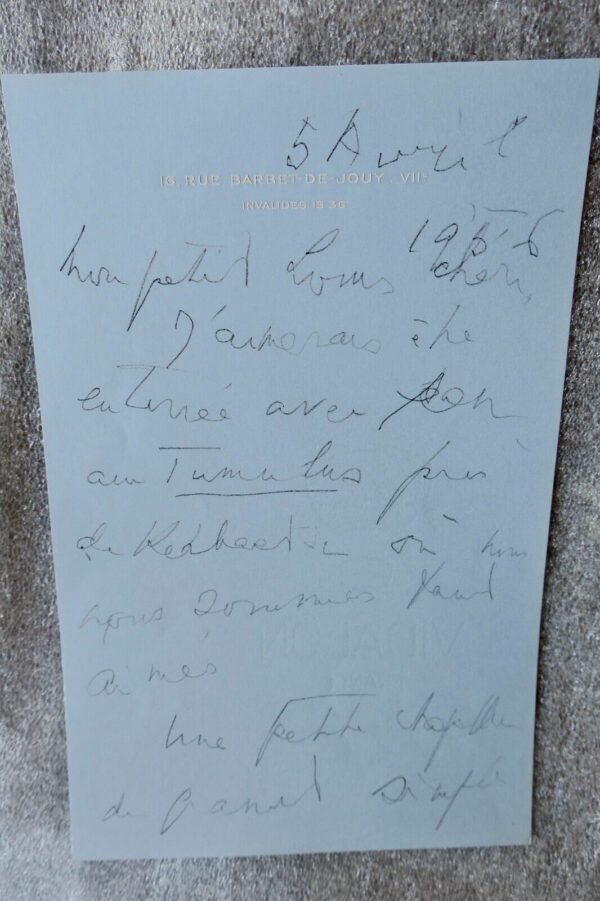 5 Avril
16, RUE BARBET-DE-JOUY. VIIe
INVALIDES 18 36
1956
mon petit Louis chéri,
J'aimerais être
enterrée avec
au Tumulus près
de où nous
nous sommes tant
aimés
Une petite chapelle
de granit simple